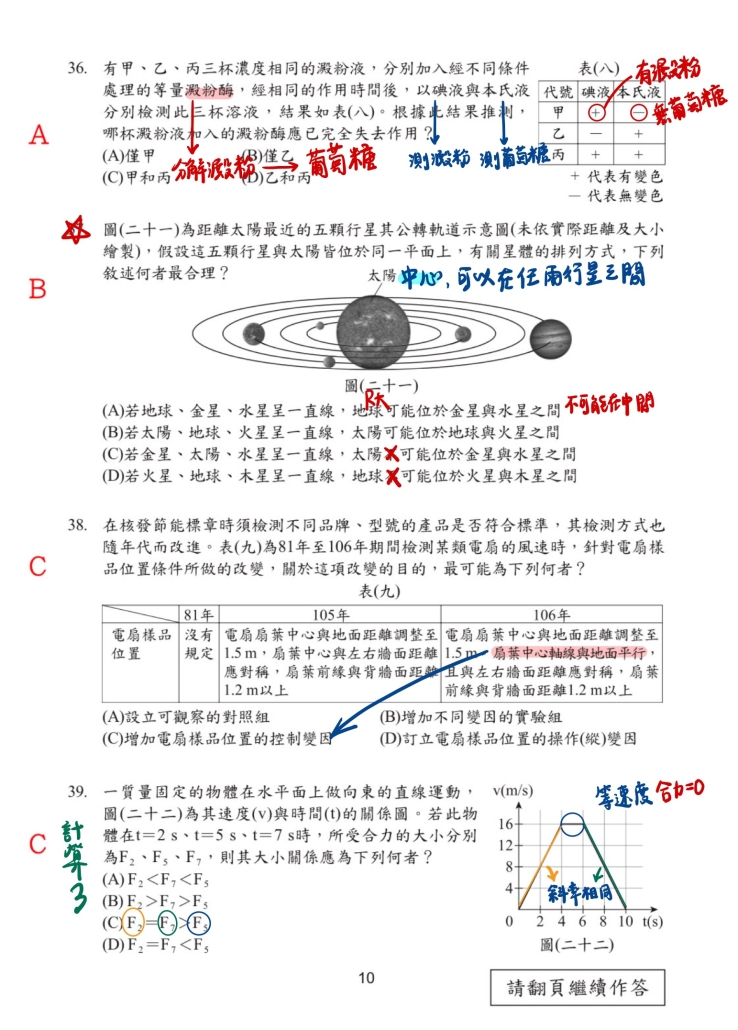 36. 有甲、乙、丙三杯濃度相同的澱粉液，分別加入經不同條件
處理的等量澱粉酶，經相同的作用時間後，以碘液與本氏液
分別檢測此三杯溶液，結果如表(八)。根據此結果推測，
哪杯澱粉液加入的澱粉酶應已完全失去作用？
(A)僅甲 (B)僅乙
(C)甲和丙 (D)乙和丙
A
分解澱粉 → 葡萄糖
測澱粉 測葡萄糖
表(八)
有澱粉
代號 碘液 本氏液
甲 + － 無葡萄糖
乙 － +
丙 + +
+ 代表有變色
－ 代表無變色
圖(二十一)為距離太陽最近的五顆行星其公轉軌道示意圖(未依實際距離及大小
繪製)，假設這五顆行星與太陽皆位於同一平面上，有關星體的排列方式，下列
敘述何者最合理？
B
太陽 中心，可以在任兩行星之間
圖(二十一)
(A)若地球、金星、水星呈一直線，地球可能位於金星與水星之間 不可能在中間
(B)若太陽、地球、火星呈一直線，太陽可能位於地球與火星之間
(C)若金星、太陽、水星呈一直線，太陽不可能位於金星與水星之間
(D)若火星、地球、木星呈一直線，地球不可能位於火星與木星之間
38. 在核發節能標章時須檢測不同品牌、型號的產品是否符合標準，其檢測方式也
隨年代而改進。表(九)為81年至106年期間檢測某類電扇的風速時，針對電扇樣
品位置條件所做的改變，關於這項改變的目的，最可能為下列何者？
C
表(九)
81年 105年 106年
電扇樣品位置
沒有規定
電扇扇葉中心與地面距離調整至
1.5 m，扇葉中心與左右牆面距離
應對稱，扇葉前緣與背牆面距離
1.2 m以上
電扇扇葉中心與地面距離調整至
1.5 m，扇葉中心軸線與地面平行，
且與左右牆面距離應對稱，扇葉
前緣與背牆面距離1.2 m以上
(A)設立可觀察的對照組 (B)增加不同變因的實驗組
(C)增加電扇樣品位置的控制變因 (D)訂立電扇樣品位置的操作(縱)變因
39. 一質量固定的物體在水平面上做向東的直線運動，
圖(二十二)為其速度(v)與時間(t)的關係圖。若此物
體在t＝2 s、t＝5 s、t＝7 s時，所受合力的大小分別
為F₂、F₅、F₇，則其大小關係應為下列何者？
(A) F₂＜F₇＜F₅
(B) F₂＞F₇＞F₅
(C) F₂＝F₇＞F₅
(D) F₂＝F₇＜F₅
C
計算3
v(m/s)
等速度 合力=0
16
12
8
4
斜率相同
0 2 4 6 8 10 t(s)
圖(二十二)
10
請翻頁繼續作答